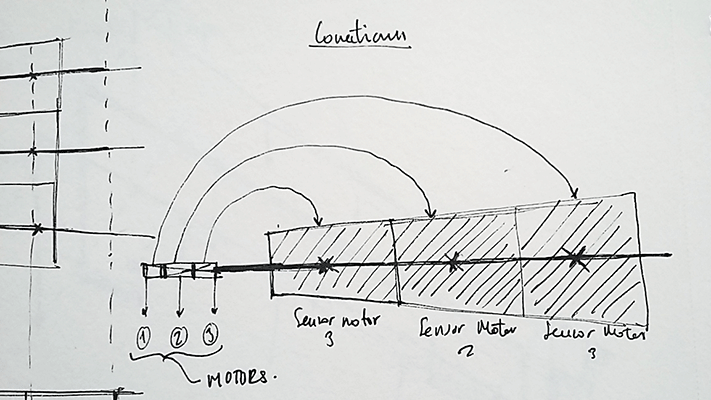 ① ② ③
MOTORS.
Sensor motor
3
Sensor Motor
2
Sensor Motor
3